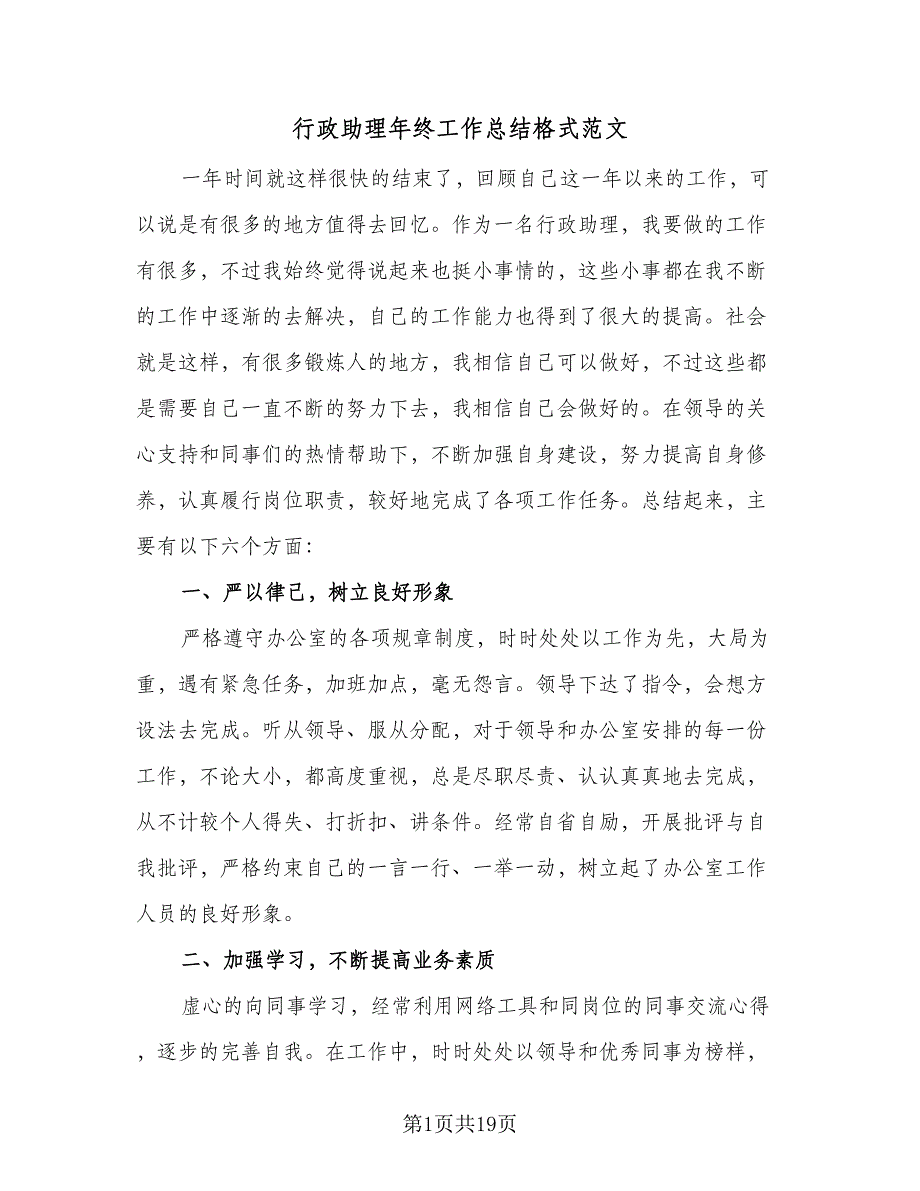 行政助理年终工作总结格式范文
一年时间就这样很快的结束了，回顾自己这一年以来的工作，可
以说是有很多的地方值得去回忆。作为一名行政助理，我要做的工作
有很多，不过我始终觉得说起来也挺小事情的，这些小事都在我不断
的工作中逐渐的去解决，自己的工作能力也得到了很大的提高。社会
就是这样，有很多锻炼人的地方，我相信自己可以做好，不过这些都
是需要自己一直不断的努力下去，我相信自己会做好的。在领导的关
心支持和同事们的热情帮助下，不断加强自身建设，努力提高自身修
养，认真履行岗位职责，较好地完成了各项工作任务。总结起来，主
要有以下六个方面：
一、严以律己，树立良好形象
严格遵守办公室的各项规章制度，时时处处以工作为先，大局为
重，遇有紧急任务，加班加点，毫无怨言。领导下达了指令，会想方
设法去完成。听从领导、服从分配，对于领导和办公室安排的每一份
工作，不论大小，都高度重视，总是尽职尽责、认认真真地去完成，
从不计较个人得失、打折扣、讲条件。经常自省自励，开展批评与自
我批评，严格约束自己的一言一行、一举一动，树立起了办公室工作
人员的良好形象。
二、加强学习，不断提高业务素质
虚心的向同事学习，经常利用网络工具和同岗位的同事交流心得
，逐步的完善自我。在工作中，时时处处以领导和优秀同事为榜样，
第1页共19页